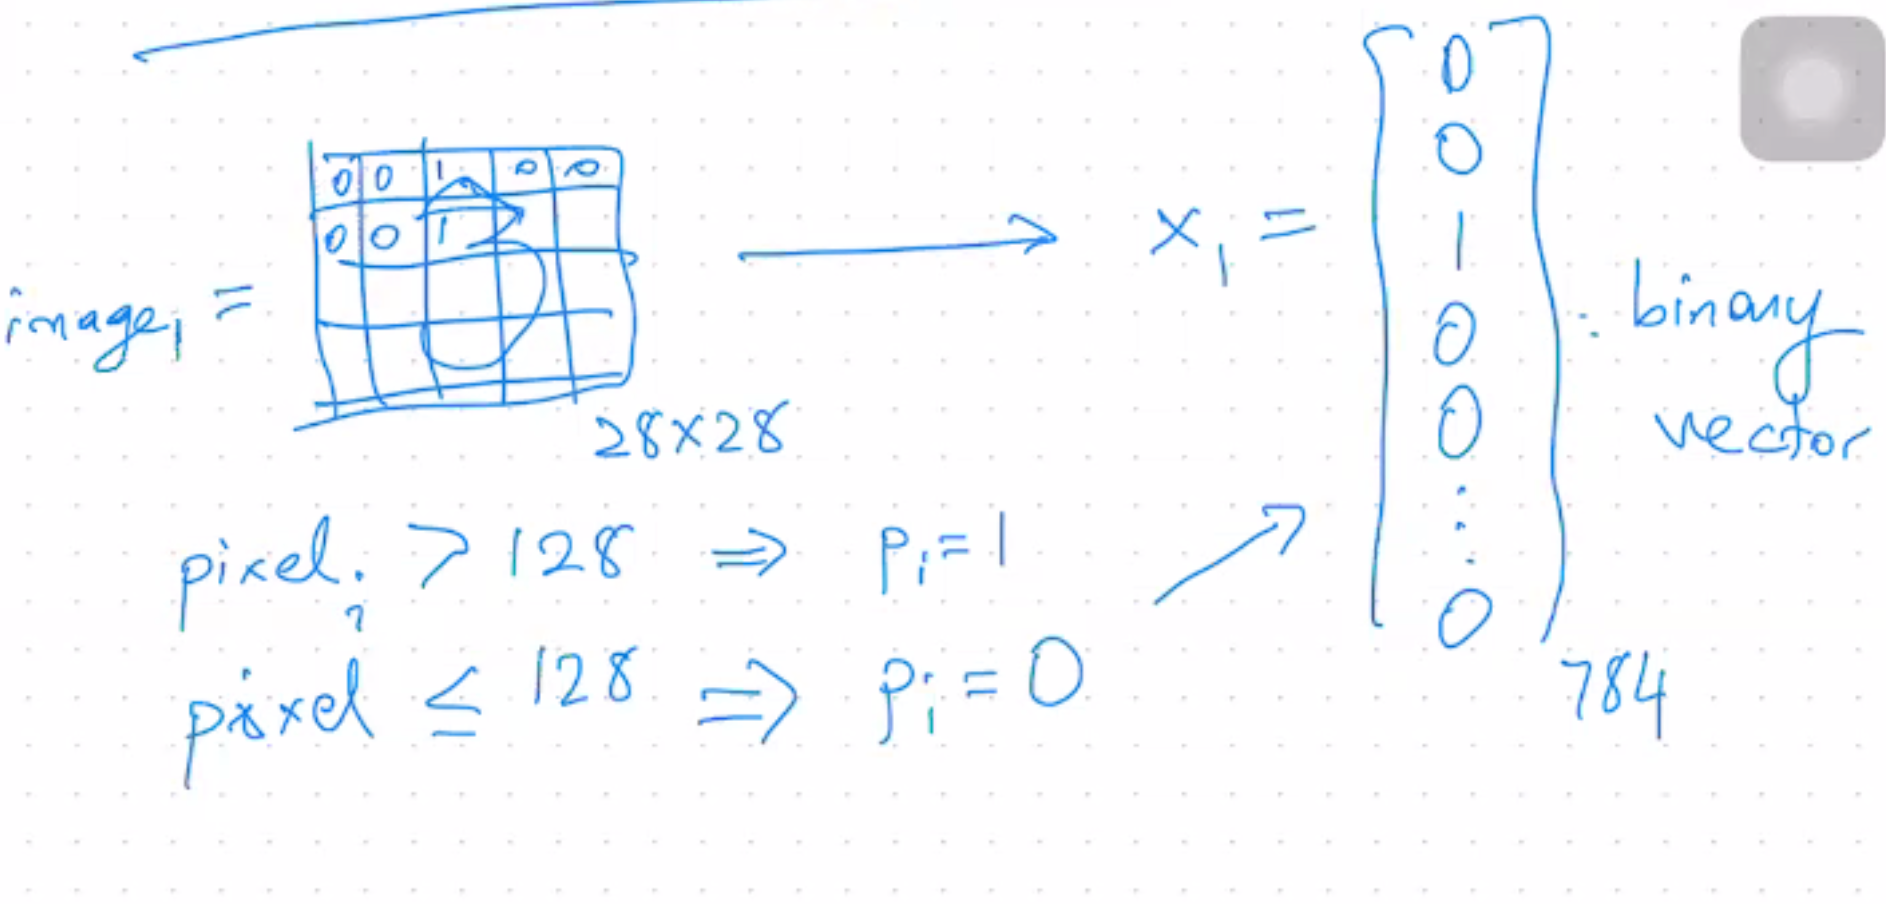 image₁ =
0 0 1 0 0
0 0 1
28×28
x₁ =
0
0
1
0
0
⋮
0
784
: binary
vector
pixelᵢ > 128 ⇒ pᵢ = 1
pixel ≤ 128 ⇒ pᵢ = 0